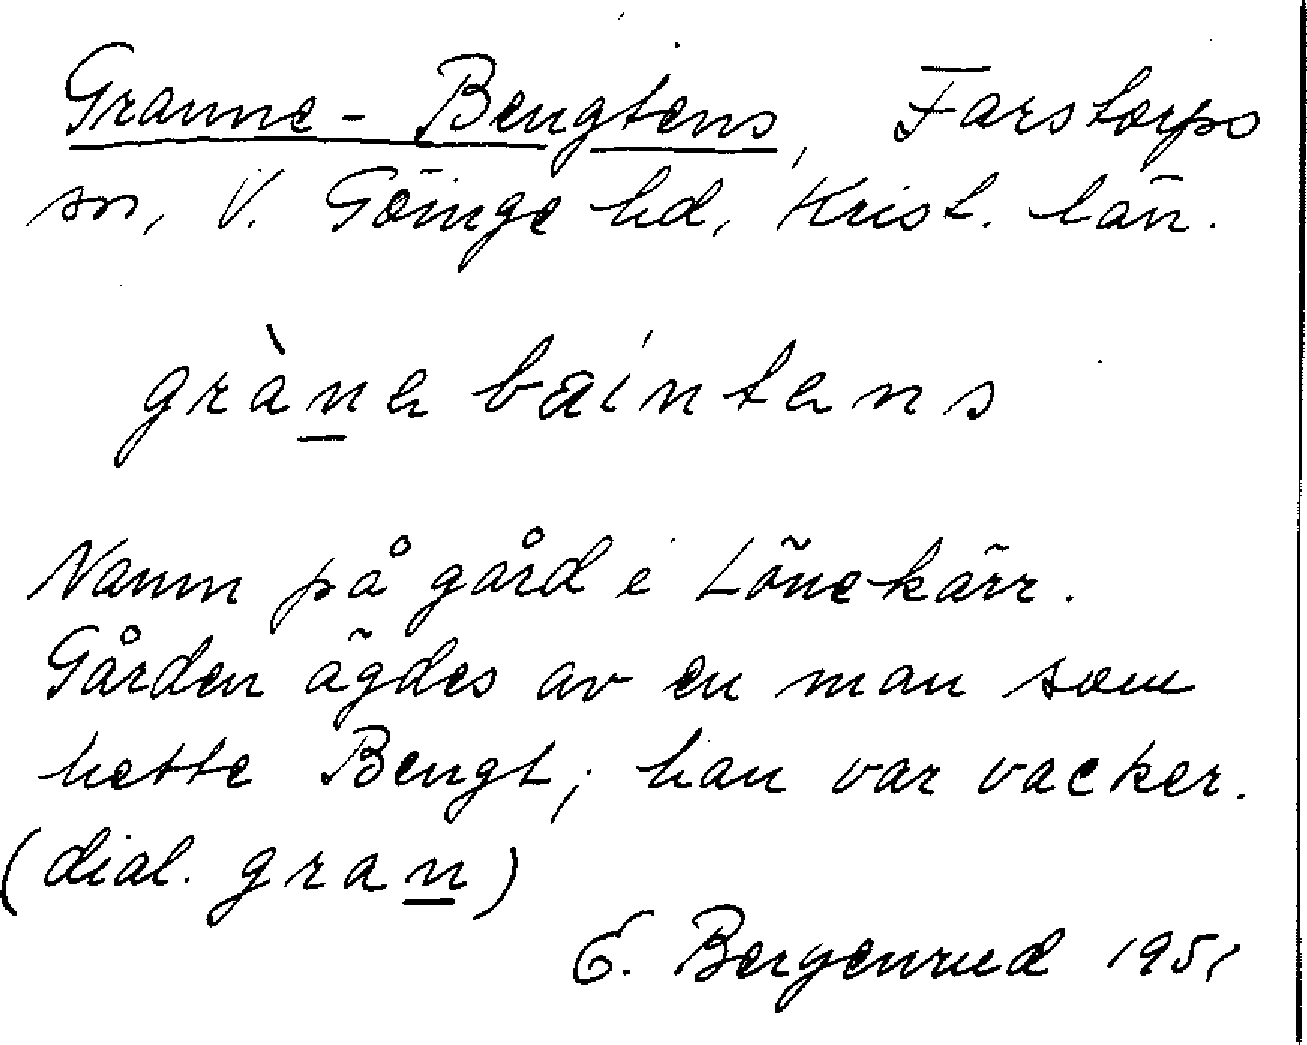 Granne-Bengtens, Farstorps
sn, V. Göinge hd, Krist. län.
gràne baíntens
Namn på gård i Lönekärr.
Gården ägdes av en man som
hette Bengt; han var vacker.
(dial. gran)
E. Bergenrud 1951